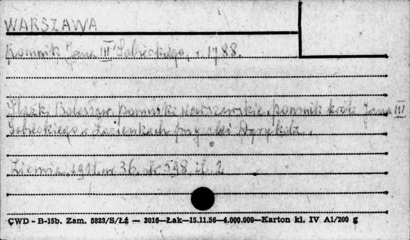 WARSZAWA
Pomnik Jana III Sobieskiego, r. 1788.
Bolesław. pomniki warszawskie, pomnik króla Jana III
Sobieskiego w Łazienkach przy
Ziemia 1911 nr 36, str 598, il. 2
CWD - B-15b. Zam. 5823/S/Łż — 3016—Łak—15.11.56—4.000.000—Karton kl. IV A1/200 g